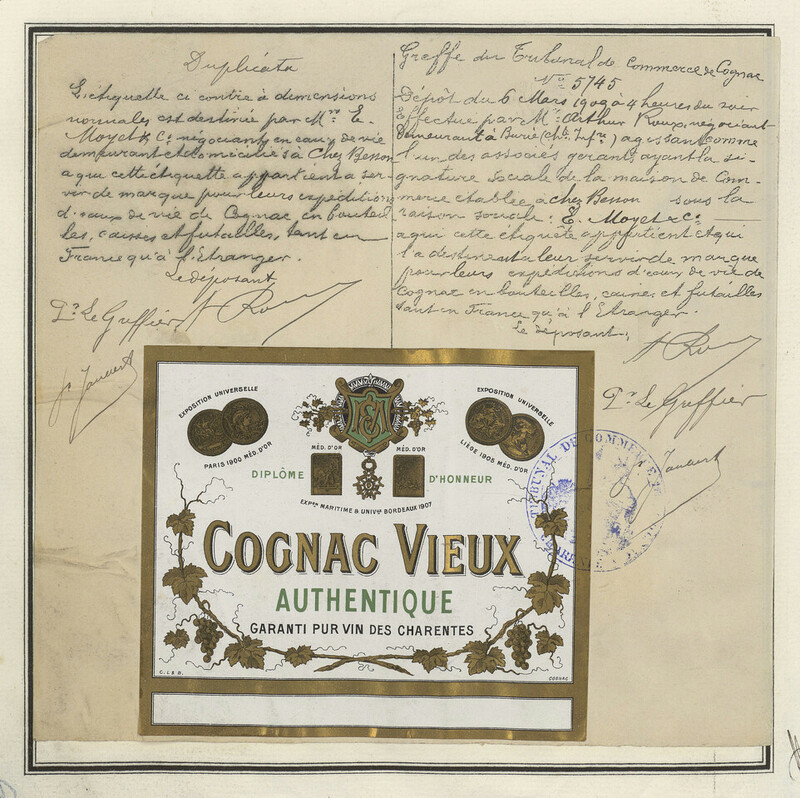 Duplicata
L'étiquette ci contre à dimensions
normales est destinée par Mrs E.
Moyet & Co négociants en eaux de vie
demeurant et domiciliés à Chez Besson
a qui cette étiquette appartient a ser-
vir de marque pour leurs expéditions
d'eaux de vie de Cognac en bouteil
les, caisses et futailles, tant en
France qu'à l'Etranger.
Le déposant
A Roux
Pr Le Greffier
Greffe du Tribunal de Commerce de Cognac
No 5745
Dépôt du 6 Mars 1909 à 4 heures du soir
Effectué par Mr Arthur Roux, négociant
Demeurant à Burie (Chte Infre) agissant comme
l'un des associés gerants ayant la si-
gnature sociale de la maison de Com-
merce etablie à chez Besson sous la
raison sociale: E. Moyet & Co
a qui cette étiquête appartient et qui
l'a destinent a leur servir de marque
pour leurs expéditions d'eaux de vie de
Cognac en bouteilles, caisses et futailles
tant en France qu'à l'Etranger.
Le déposant,
A Roux
Pr Le Greffier
EXPOSITION UNIVERSELLE
PARIS 1900 MÉD. D'OR
EXPOSITION UNIVERSELLE
LIÈGE 1905 MÉD. D'OR
MÉD. D'OR MÉD. D'OR
DIPLÔME D'HONNEUR
EXPON MARITIME & UNIVLE BORDEAUX 1907
COGNAC VIEUX
AUTHENTIQUE
GARANTI PUR VIN DES CHARENTES
COGNAC
TRIBUNAL DE COMMERCE